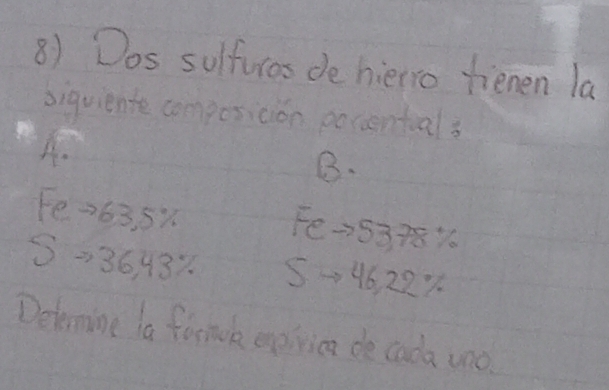 8) Dos sulfuros de hierro tienen la
siguiente composición porcentual:
A.
B.
Fe → 63,5%
Fe → 53,78%
S → 36,43%
S → 46,22%
Determine la fórmula empírica de cada uno.